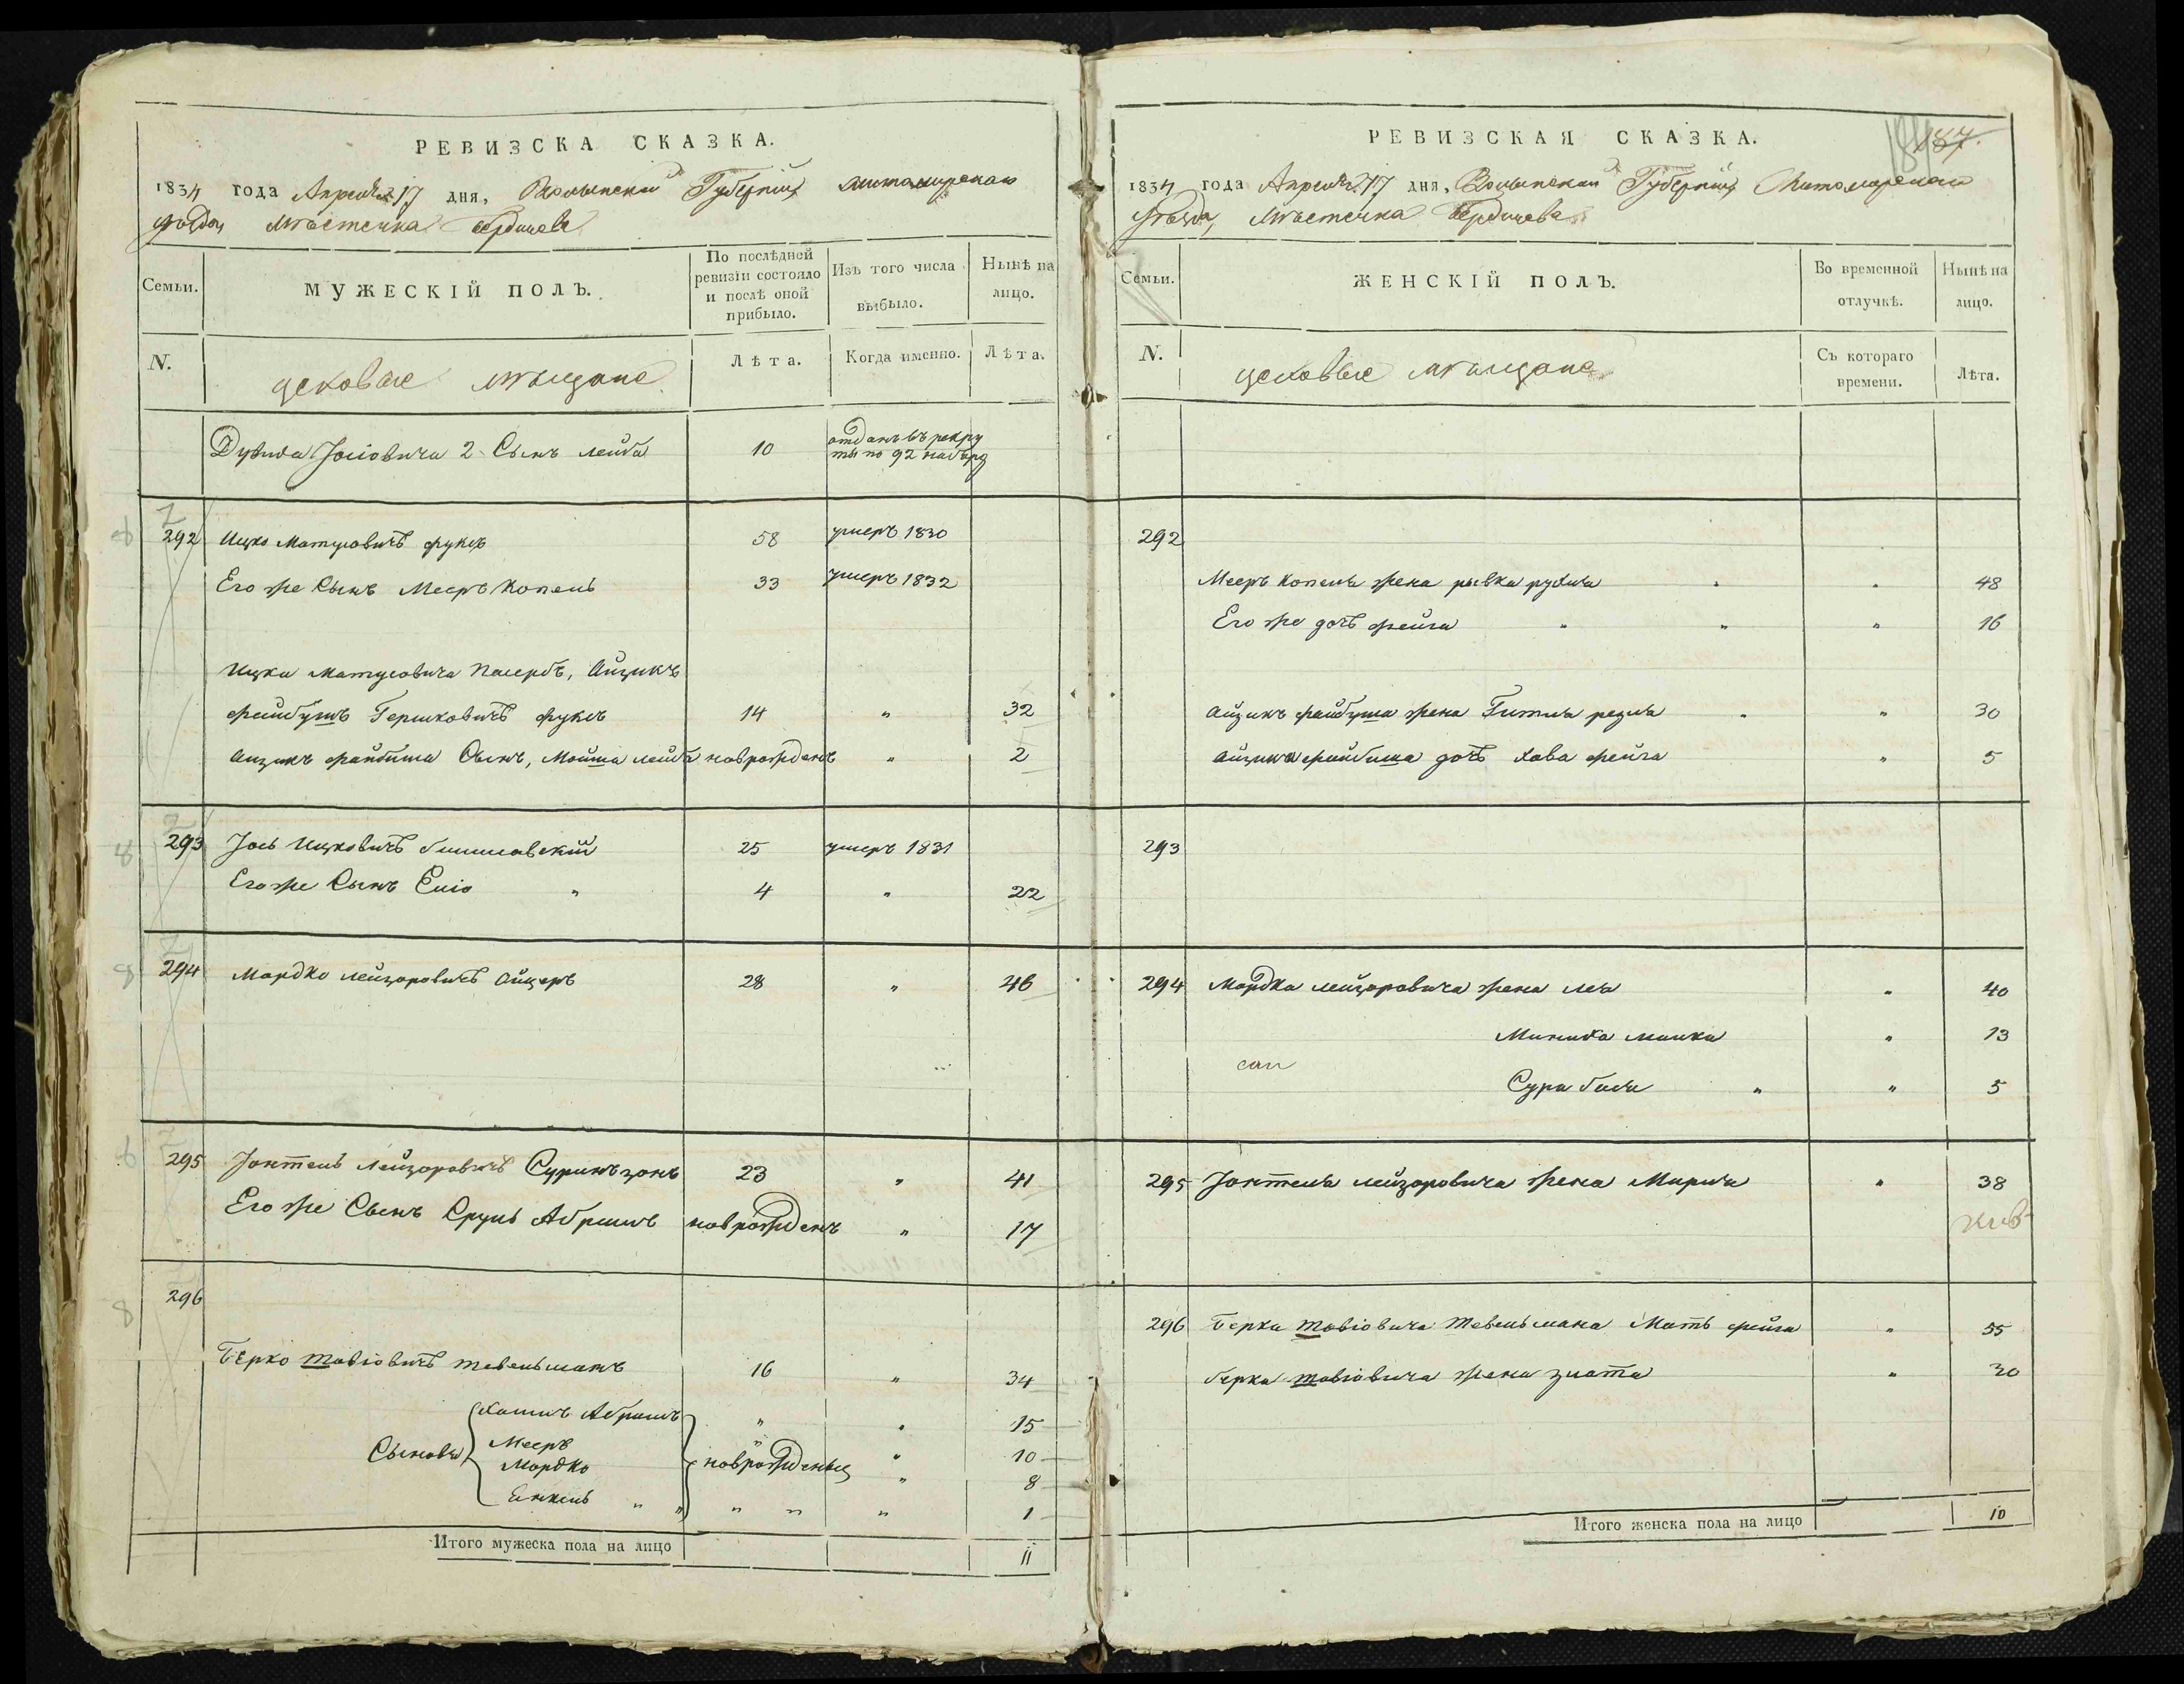 РЕВИЗСКА СКАЗКА.
1834 года Апреля 17 дня, Волынской Губернии, Житомирскаго
уѣзда, Мѣстечка Бердичева
Семьи.
МУЖЕСКІЙ ПОЛЪ.
По послѣдней ревизіи состояло и послѣ оной прибыло.
Изъ того числа выбыло.
Нынѣ на лицо.
N.
цеховые мѣщане
Лѣта.
Когда именно.
Лѣта.
Дувида Іосіовича 2 Сынъ лейба 10 отданъ въ рекру
ты по 92 набору
292 Ицко Матусовичъ фуксъ 58 умеръ 1830
Его же Сынъ Мееръ Копель 33 умеръ 1832
Ицка Матусовича Пасербъ, Айзикъ
файбушъ Гершковичъ фуксъ 14 " 32
Айзикъ файбиша Сынъ, Мойша лейба новрожденъ " 2
293 Іось Ицковичъ 25 умеръ 1831
Его же Сынъ Еліо " 4 " 22
294 Мордко лейзоровичъ Айзеръ 28 " 46
295 Іонтель лейзоровичъ Суринъзонъ 23 " 41
Его же Сынъ Сруль Абрамъ новрожденъ " 17
296
Берко товіовичъ тевельманъ 16 " 34
Сыновья
Хаимъ Абрамъ " " 15
Мееръ " " 10
Мордко новрожденны " 8
Енкель " " " " " 1
Итого мужеска пола на лицо 11
РЕВИЗСКАЯ СКАЗКА.
187.
1834 года Апреля 17 дня, Волынской Губерніи, Житомирскаго
уѣзда, Мѣстечка Бердичева
Семьи.
ЖЕНСКІЙ ПОЛЪ.
Во временной отлучкѣ.
Нынѣ на лицо.
N.
цеховые мѣщане
Съ котораго времени.
Лѣта.
292
Мееръ Копеля жена рывка рухля " " 48
Его же дочъ фейга " " " 16
Айзикъ файбуша жена Гитля резля " " 30
Айзика файбиша дочъ хава фейга " 5
293
294 Мордка лейзоровича жена лея " 40
Минихa малка " 13
Сура бася " " 5
295 Іонтеля лейзоровича жена Мирля " 38
296 Берка товіовича Тевельмана Мать фейга " 55
берка товіовича жена злота " 30
Итого женска пола на лицо 10